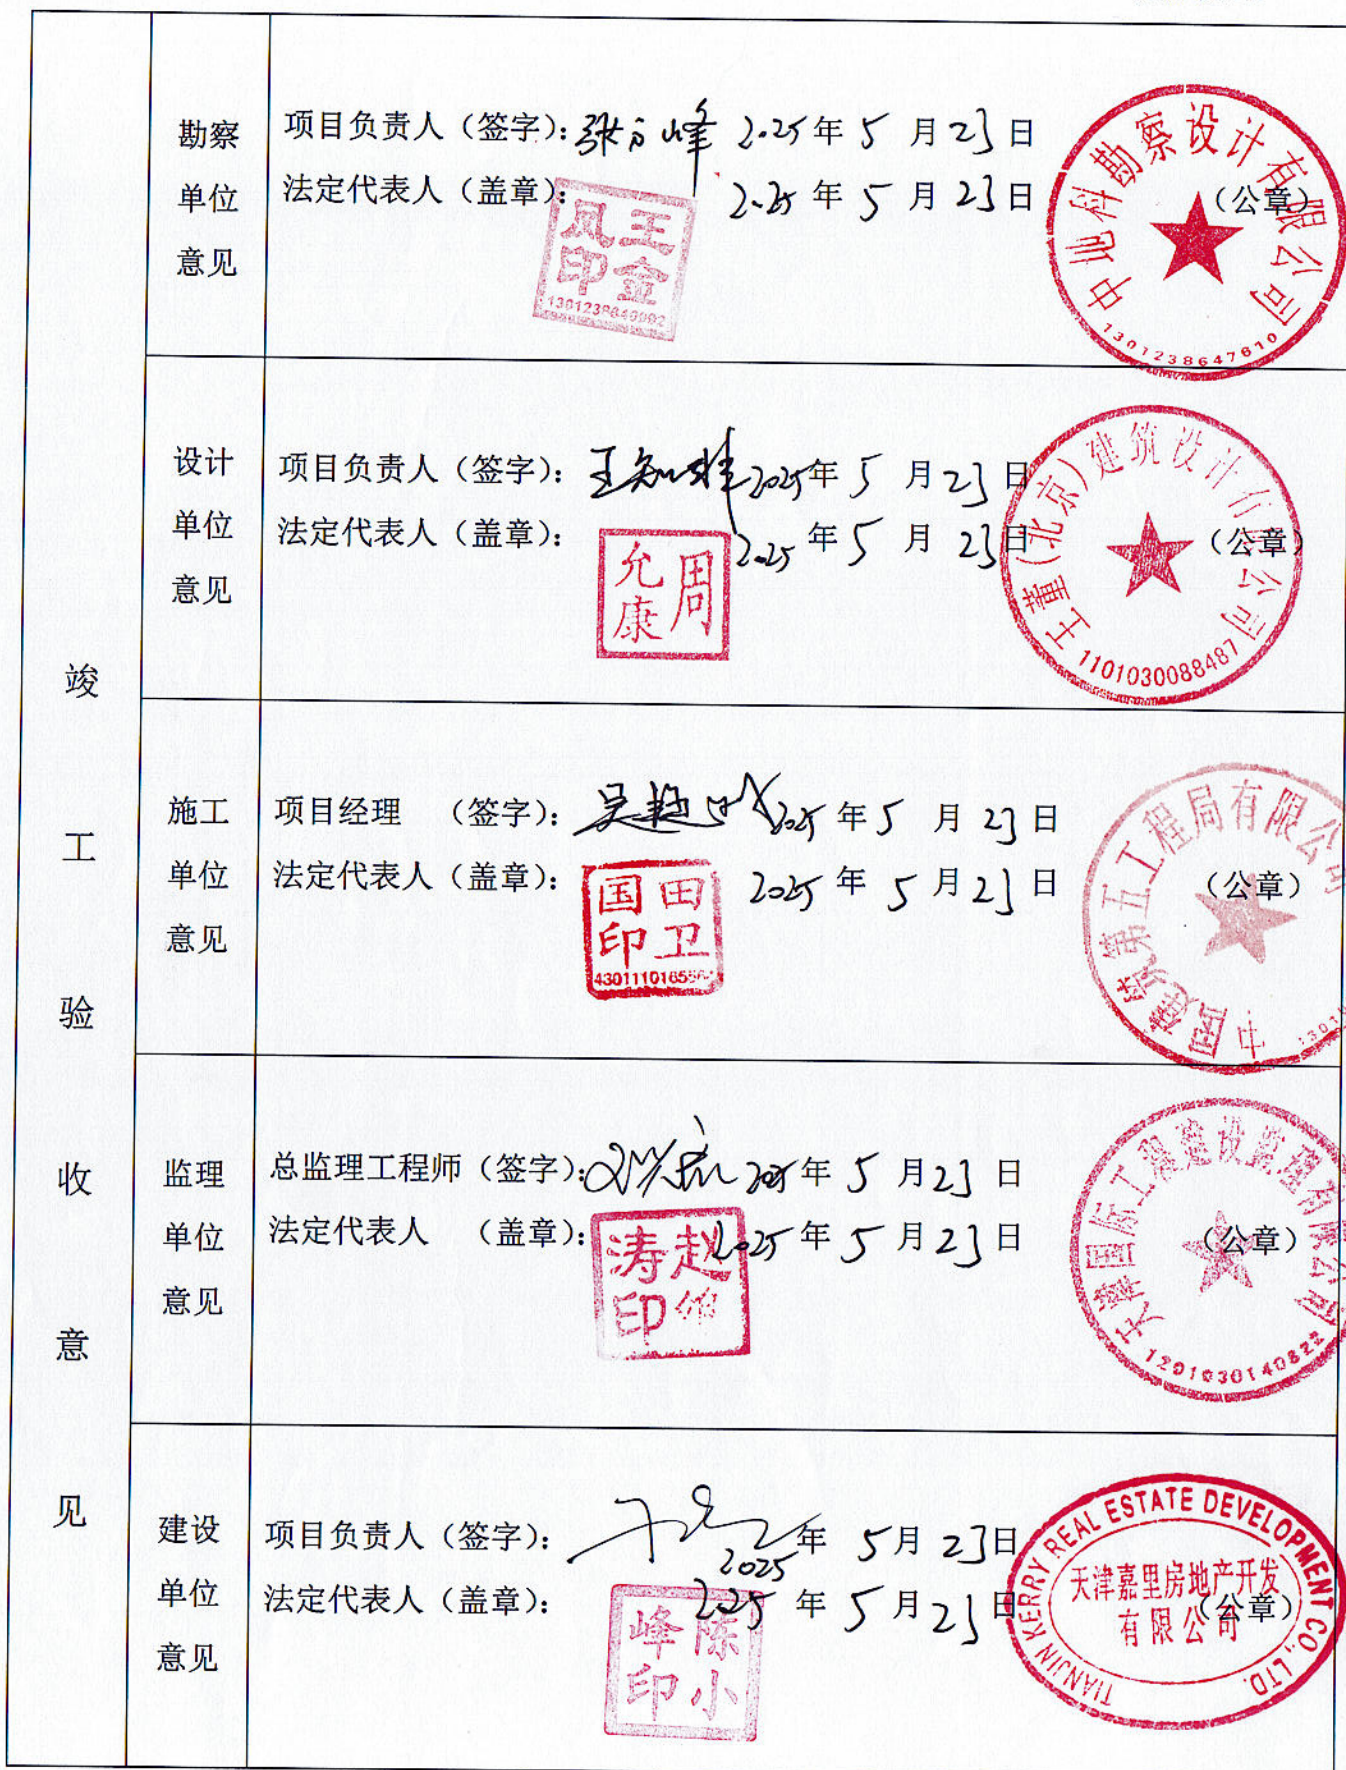 竣工验收意见
勘察单位意见
项目负责人（签字）： 2025年 5 月 23 日
法定代表人（盖章）： 2025 年 5 月 23 日
（公章）
王金凤印
中地科勘察设计有限公司
1301238647610
设计单位意见
项目负责人（签字）： 2025年 5 月 23 日
法定代表人（盖章）： 2025 年 5 月 23 日
（公章）
周允康
王董(北京)建筑设计有限公司
1101030088487
施工单位意见
项目经理 （签字）： 2025 年 5 月 23 日
法定代表人（盖章）： 2025 年 5 月 23 日
（公章）
田卫国印
中国建筑第五工程局有限公司
监理单位意见
总监理工程师（签字）： 2025 年 5 月 23 日
法定代表人 （盖章）： 2025 年 5 月 23 日
（公章）
涛印
天津国际工程建设监理有限公司
1201030140822
建设单位意见
项目负责人（签字）： 2025 年 5月 23日
法定代表人（盖章）： 2025 年 5 月 23 日
（公章）
陈小峰印
TIANJIN KERRY REAL ESTATE DEVELOPMENT CO., LTD.
天津嘉里房地产开发
有限公司